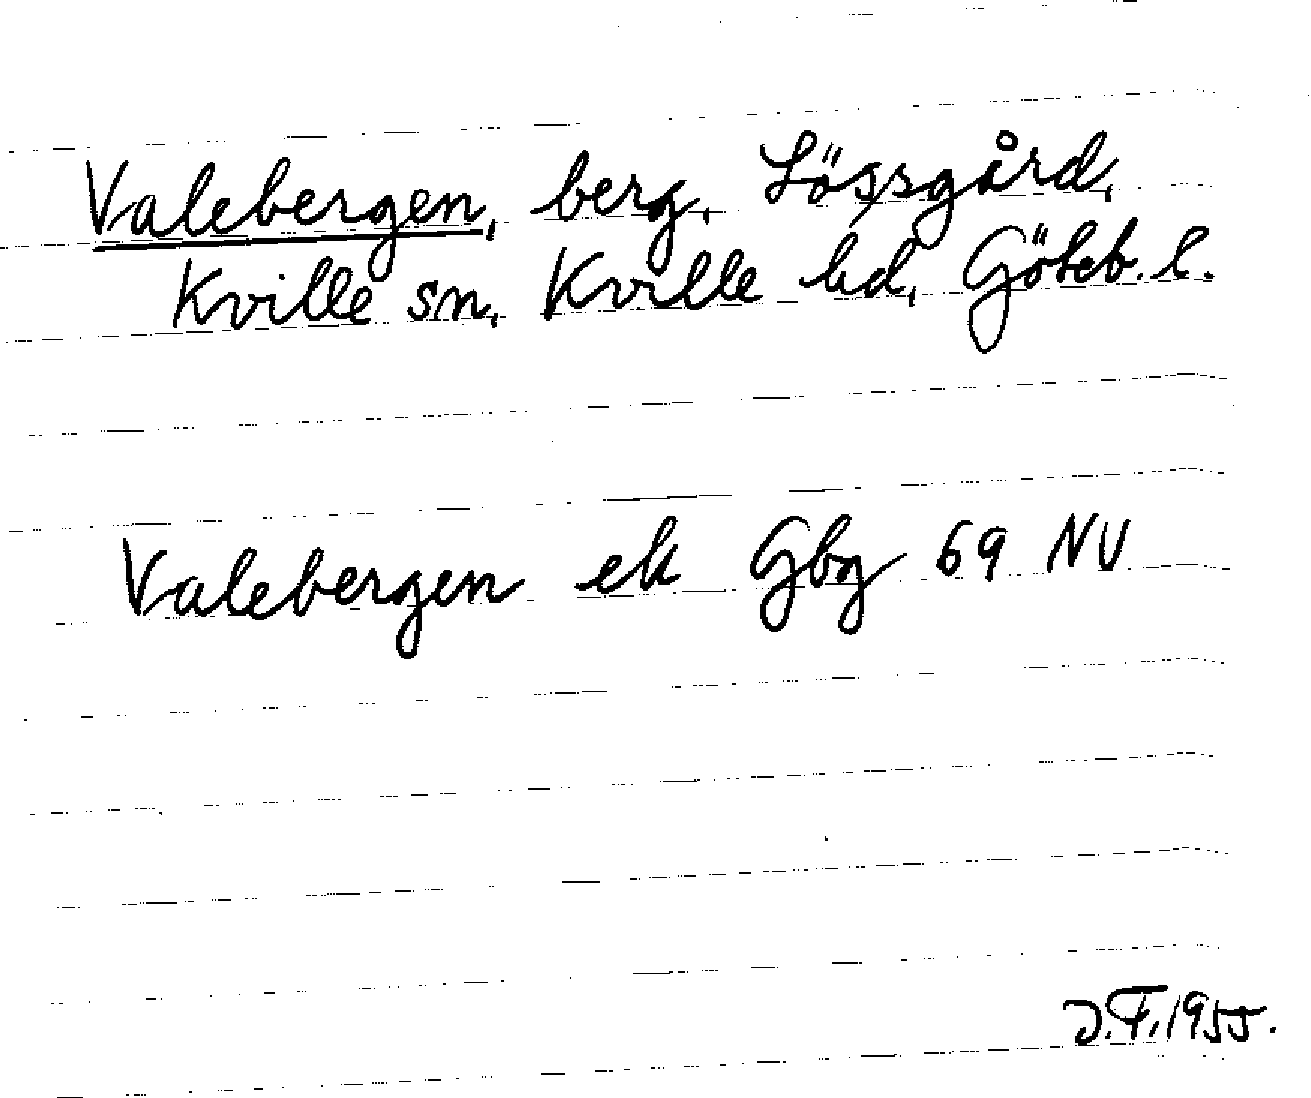 Valebergen, berg, Lössgård,
Kville sn, Kville hd, Göteb. l.
Valebergen ek Gbg 69 NV
J.F. 1955.